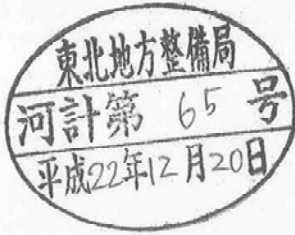 東北地方整備局
河計第 65 号
平成22年12月20日